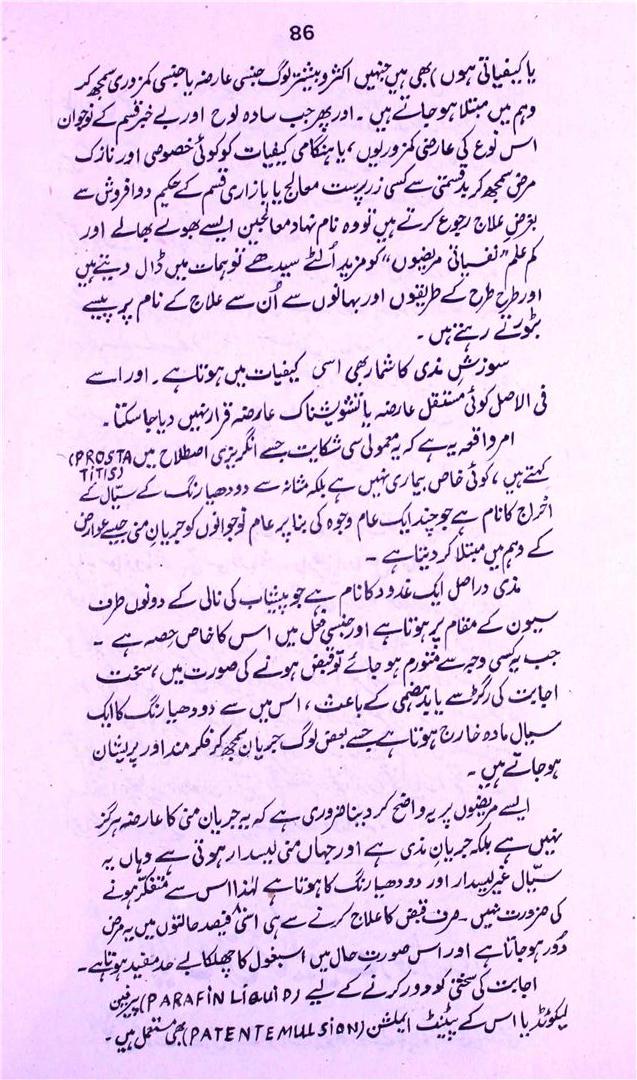 86
یا کیفیاتی ہوں) بھی ہیں جنہیں اکثر و بیشتر لوگ جنسی عارضہ یا جنسی کمزوری سمجھ کر
وہم میں مبتلا ہو جاتے ہیں ۔ اور پھر جب سادہ لوح اور بے خبر قسم کے نوجوان
اس نوع کی عارضی کمزوریوں، یا ہنگامی کیفیات کو کوئی خصوصی اور نازک
مرض سمجھ کر بدقسمتی سے کسی زر پرست معالج یا بازاری قسم کے حکیم دوا فروش سے
بغرض علاج رجوع کرتے ہیں تو وہ نام نہاد معالجین ایسے بھولے بھالے اور
کم علم "نفسیاتی مریضوں" کو مزید اُلٹے سیدھے توہمات میں ڈال دیتے ہیں
اور طرح طرح کے طریقوں اور بہانوں سے اُن سے علاج کے نام پر پیسے
بٹورتے رہتے ہیں ۔
سوزشِ مذی کا شمار بھی اسی کیفیات میں ہوتا ہے ۔ اور اسے
فی الاصل کوئی مستقل عارضہ یا تشویشناک عارضہ قرار نہیں دیا جا سکتا ۔
امر واقعہ یہ ہے کہ یہ معمولی سی شکایت جسے انگریزی اصطلاح میں (PROSTA
TITIS) کہتے ہیں، کوئی خاص بیماری نہیں ہے بلکہ مثانہ سے دودھیا رنگ کے سیّال کے
اخراج کا نام ہے جو چند ایک عام وجوہ کی بنا پر عام نوجوانوں کو جریان منی جیسے عوارض
کے وہم میں مبتلا کر دیتا ہے ۔
مذی دراصل ایک غدود کا نام ہے جو پیشاب کی نالی کے دونوں طرف
سیون کے مقام پر ہوتا ہے اور جنسی فعل میں اس کا خاص حصہ ہے ۔
جب یہ کسی وجہ سے متورم ہو جائے تو قبض ہونے کی صورت میں، سخت
اجابت کی رگڑ سے یا بدہضمی کے باعث، اس میں سے دودھیا رنگ کا ایک
سیال مادہ خارج ہوتا ہے جسے بعض لوگ جریان سمجھ کر فکر مند اور پریشان
ہو جاتے ہیں ۔
ایسے مریضوں پر یہ واضح کر دینا ضروری ہے کہ یہ جریان منی کا عارضہ ہرگز
نہیں ہے بلکہ جریانِ مذی ہے اور جہاں منی لیسدار ہوتی ہے وہاں یہ
سیّال غیر لیسدار اور دودھیا رنگ کا ہوتا ہے لہٰذا اس سے متفکر ہونے
کی ضرورت نہیں ۔ صرف قبض کا علاج کرنے سے ہی اسّی ۸۰ فیصد حالتوں میں یہ مرض
دُور ہو جاتا ہے اور اس صورتِ حال میں اسبغول کا چھلکا بے حد مفید ہوتا ہے ۔
اجابت کی سختی کو دور کرنے کے لیے (PARAFIN LiQUiD) پیرفین
لیکوئڈ یا اس کے پیٹنٹ ایملشن (PATENTEMULSION) بھی مستعمل ہیں ۔